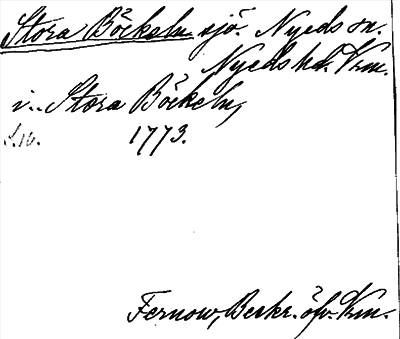 Stora Böckeln sjö. Nyeds sn.
Nyeds hd. Vrm.
i. Stora Böckeln,
S. 16. 1773.
Fernow, Beskr. öfv. Vrm.